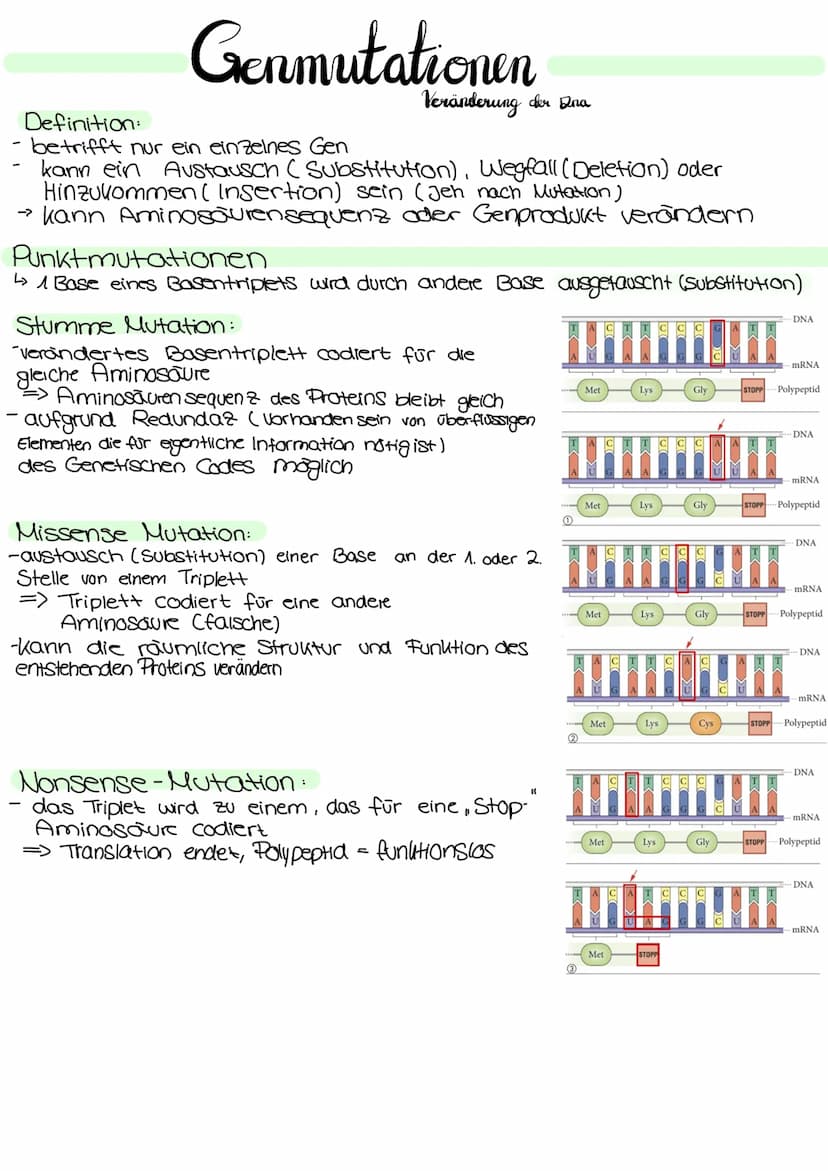 Genmutationen
Veränderung der Dna
Definition:
- betrifft nur ein einzelnes Gen
- kann ein Austausch (Substitution), Wegfall (Deletion) oder
Hinzukommen (Insertion) sein (Jeh nach Mutation)
→ kann Aminosäurensequenz oder Genprodukt verändern
Punktmutationen
↳ 1 Base eines Basentriplets wird durch andere Base ausgetauscht (Substitution)
Stumme Mutation:
- verändertes Basentriplett codiert für die
gleiche Aminosäure
=> Aminosäurensequenz des Proteins bleibt gleich
- aufgrund Redundaz (Vorhandensein von überflüssigen
Elementen die für egentliche Information nötig ist)
des Genetischen Codes möglich
T A C T T C C C G A T T DNA
A U G A A G G G C U A A mRNA
Met Lys Gly STOPP Polypeptid
T A C T T C C C A A T T DNA
A U G A A G G G U U A A mRNA
Met Lys Gly STOPP Polypeptid
①
Missense Mutation:
- austausch (Substitution) einer Base an der 1. oder 2.
Stelle von einem Triplett
=> Triplett codiert für eine andere
Aminosäure (falsche)
- kann die räumliche Struktur und Funktion des
entstehenden Proteins verändern
T A C T T C C C G A T T DNA
A U G A A G G G C U A A mRNA
Met Lys Gly STOPP Polypeptid
T A C T T C A C G A T T DNA
A U G A A G U G C U A A mRNA
Met Lys Cys STOPP Polypeptid
②
Nonsense-Mutation:
- das Triplet wird zu einem, das für eine „Stop-"
Aminosäure codiert
=> Translation endet, Polypeptid = funktionslos
T A C T T C C C G A T T DNA
A U G A A G G G C U A A mRNA
Met Lys Gly STOPP Polypeptid
T A C A T C C C G A T T DNA
A U G U A G G G C U A A mRNA
Met STOPP
③